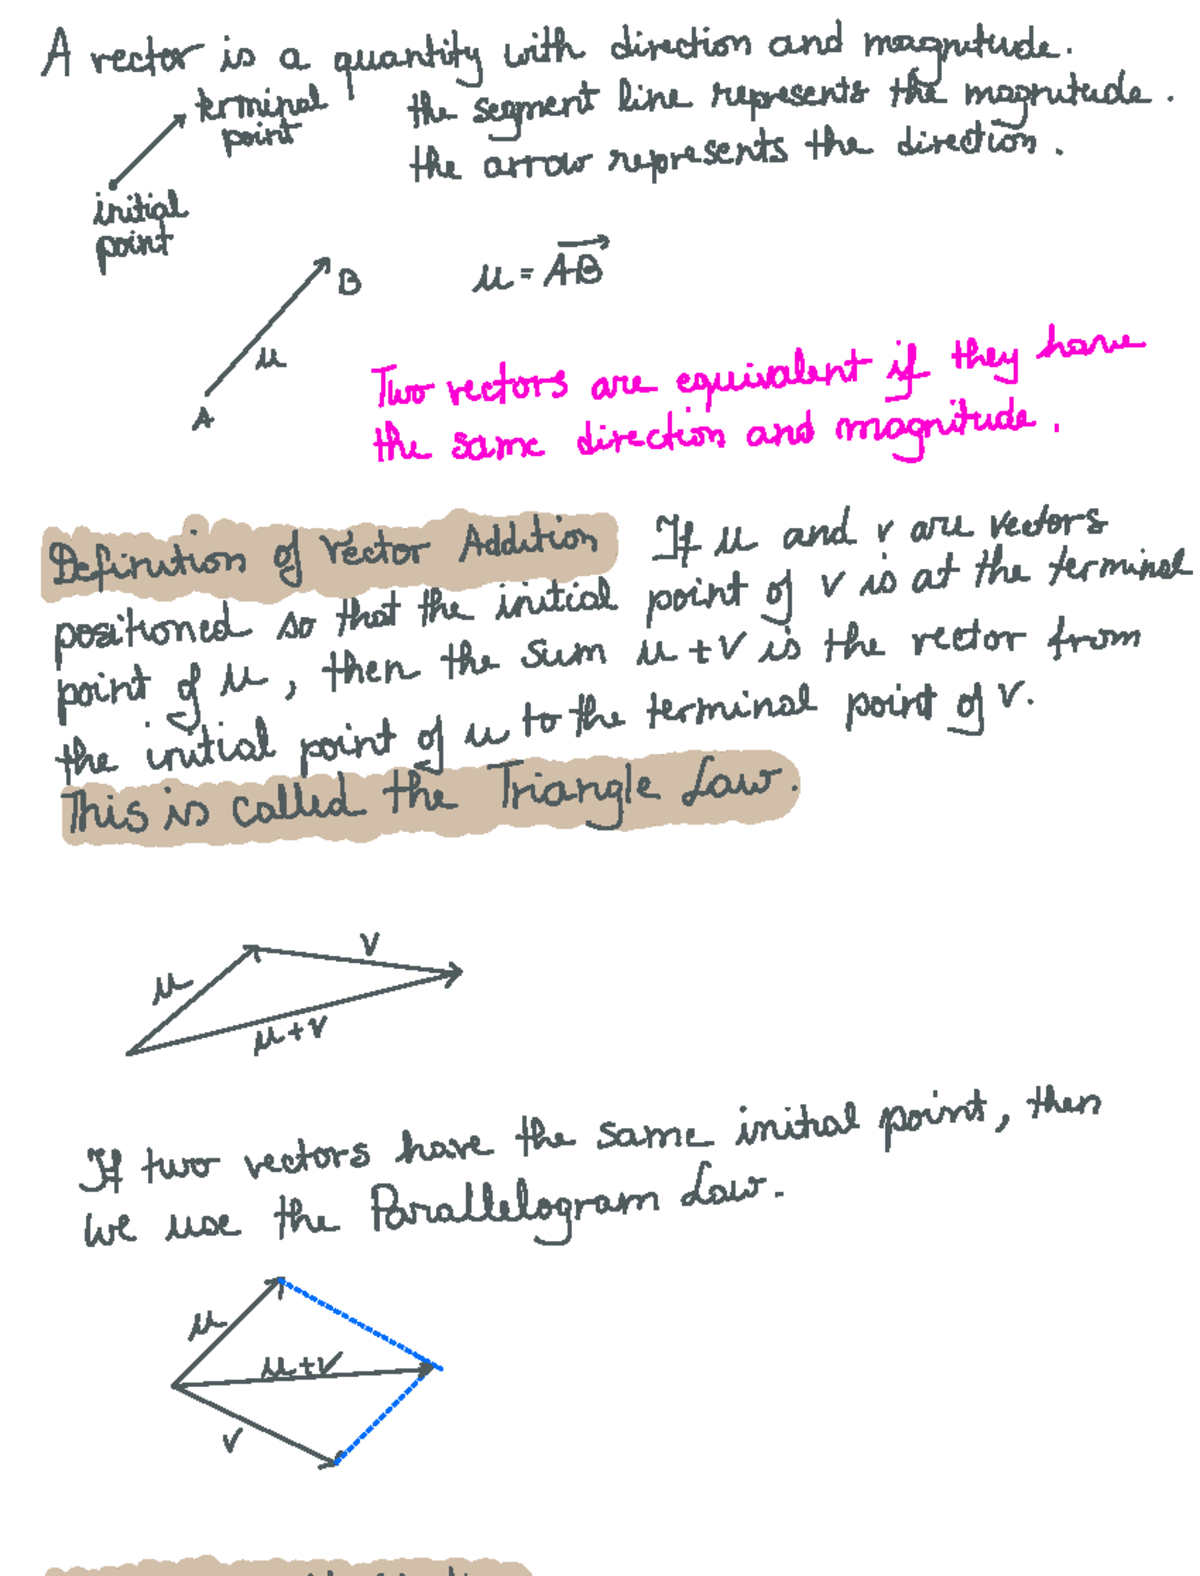 A vector is a quantity with direction and magnitude.
terminal point
the segment line represents the magnitude.
the arrow represents the direction.
initial point
B
u = AB
u
A
Two vectors are equivalent if they have
the same direction and magnitude.
Definition of Vector Addition If u and v are vectors
positioned so that the initial point of v is at the terminal
point of u, then the sum u+v is the vector from
the initial point of u to the terminal point of v.
This is called the Triangle Law.
v
u
u+v
If two vectors have the same initial point, then
we use the Parallelogram Law.
u
u+v
v